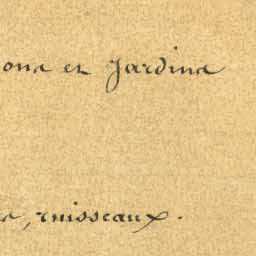 ons et Jardins
s, ruisseaux.